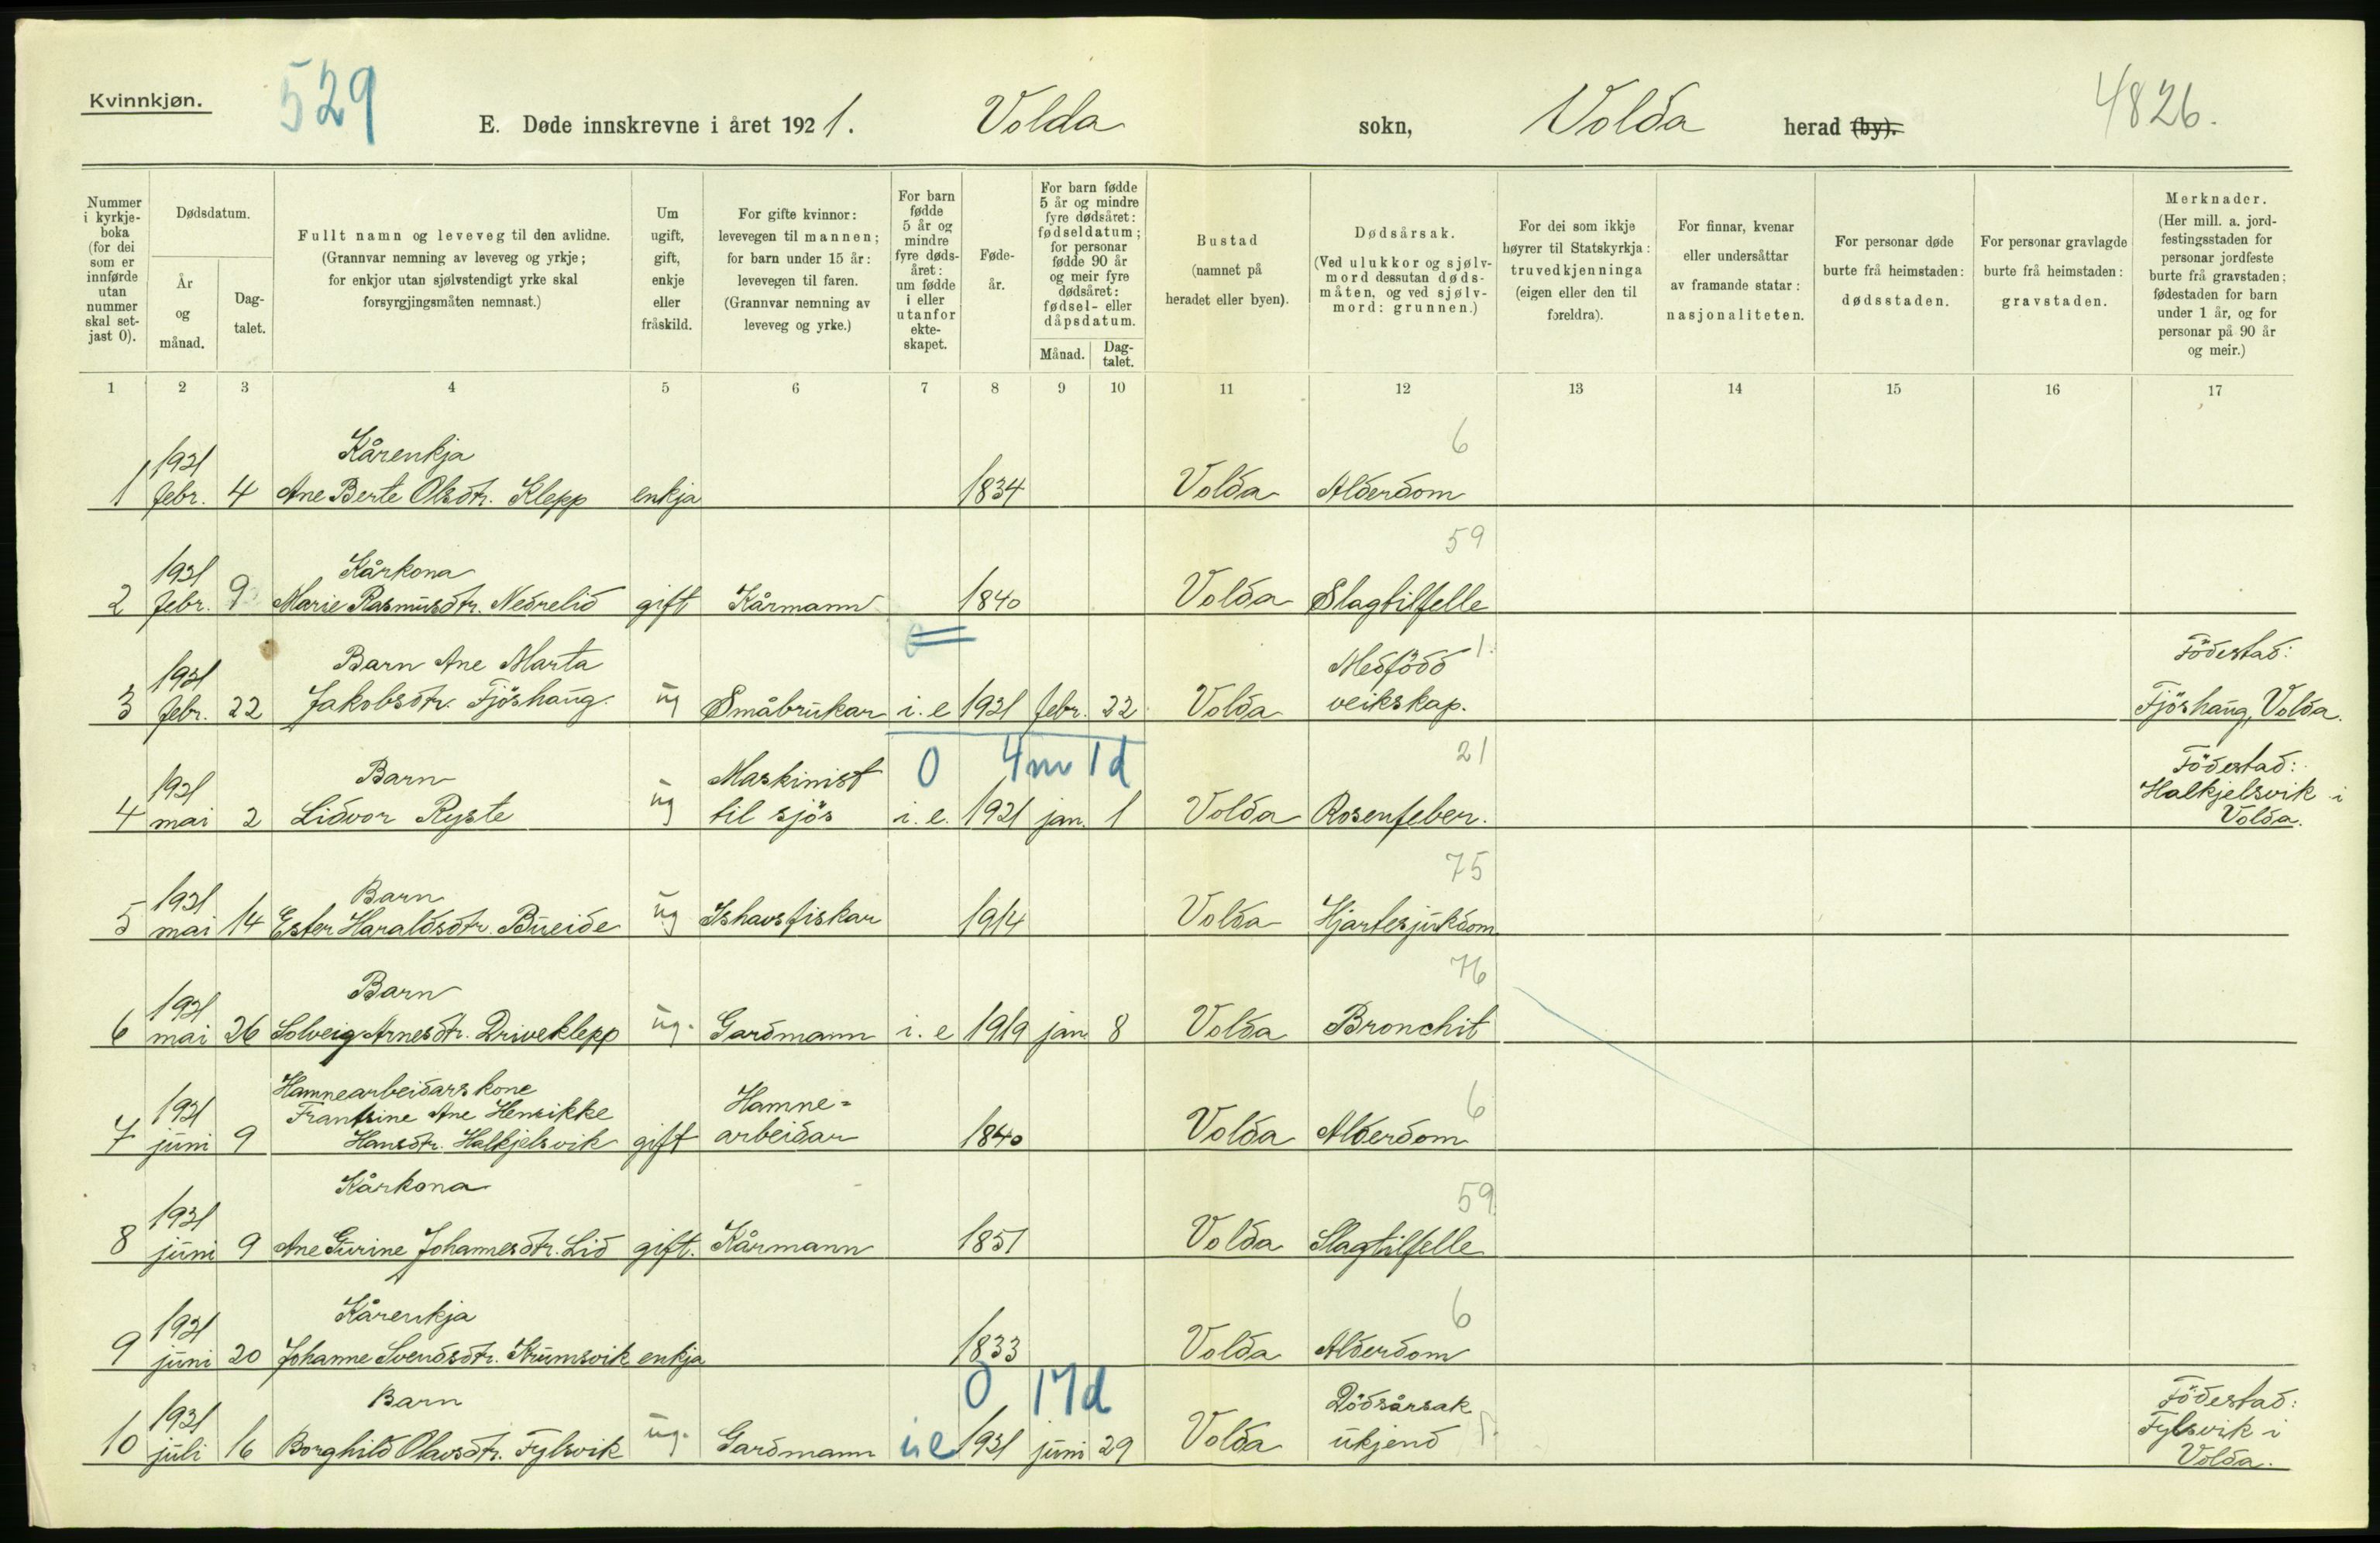 Kvinnkjøn.
529
E. Døde innskrevne i året 1921. Volda sokn, Volda herad (by).
4826.
Nummer i kyrkje-boka (for dei som er innførde utan nummer skal set-jast 0).
Dødsdatum.
År og månad.
Dag-talet.
Fullt namn og leveveg til den avlidne. (Grannvar nemning av leveveg og yrkje; for enkjor utan sjølvstendigt yrke skal forsyrgjingsmåten nemnast.)
Um ugift, gift, enkje eller fråskild.
For gifte kvinnor: levevegen til mannen; for barn under 15 år: levevegen til faren. (Grannvar nemning av leveveg og yrke.)
For barn fødde 5 år og mindre fyre døds-året: um fødde i eller utanfor ekte-skapet.
Føde-år.
For barn fødde 5 år og mindre fyre dødsåret: fødseldatum; for personar fødde 90 år og meir fyre dødsåret: fødsel- eller dåpsdatum.
Månad. Dag-talet.
Bustad (namnet på heradet eller byen).
Dødsårsak. (Ved ulukkor og sjølv-mord dessutan døds-måten, og ved sjølv-mord: grunnen.)
For dei som ikkje høyrer til Statskyrkja: truvedkjenninga (eigen eller den til foreldra).
For finnar, kvenar eller undersåttar av framande statar: nasjonaliteten.
For personar døde burte frå heimstaden: dødsstaden.
For personar gravlagde burte frå heimstaden: gravstaden.
Merknader. (Her mill. a. jord-festingsstaden for personar jordfeste burte frå gravstaden; fødestaden for barn under 1 år, og for personar på 90 år og meir.)
1 2 3 4 5 6 7 8 9 10 11 12 13 14 15 16 17
1921 Kårenkja 6
1 febr. 4 Ane Berte Olsdtr. Klepp enkja 1834 Volda Alderdom
1921 Kårkona 59
2 febr. 9 Marie Rasmusdtr. Nedrelid gift Kårmann 1840 Volda Slagtilfelle
1921 Barn Ane Marta Medfödd 1. Födestad:
3 febr. 22 Jakobsdtr. Fjöshaug. ug Småbrukar i. e 1921 febr. 22 Volda veikskap. Fjöshaug, Volda.
1921 Barn Maskinist 0 4m 1d 21 Födestad:
4 mai 2 Lidvor Ryste ug til sjös i. e. 1921 jan. 1 Volda Rosenfeber. Halkjelsvik i Volda.
1921 Barn 75
5 mai 14 Ester Haraldsdtr. Bueide ug Ishavsfiskar 1914 Volda Hjartesjukdom
1921 Barn 76
6 mai 26 Solveig Arnesdtr. Driveklepp ug. Gardmann i. e 1919 jan. 8 Volda Bronchit
Hamnearbeidarskone
1921 Frantsine Ane Henrikke Hamne= 6
7 juni 9 Hansdtr. Halkjelsvik gift arbeidar 1840 Volda Alderdom
1921 Kårkona 59
8 juni 9 Ane Gurine Johannesdtr. Lid gift. Kårmann 1851 Volda Slagtilfelle
1921 Kårenkja 6
9 juni 20 Johanne Svendsdtr. Krumsvik enkja 1833 Volda Alderdom
1921 Barn 0 17d Dödsårsak Födestad:
10 juli 16 Borghild Olavsdtr. Fylsvik ug. Gardmann i e 1921 juni 29 Volda ukjend Fylsvik i Volda.